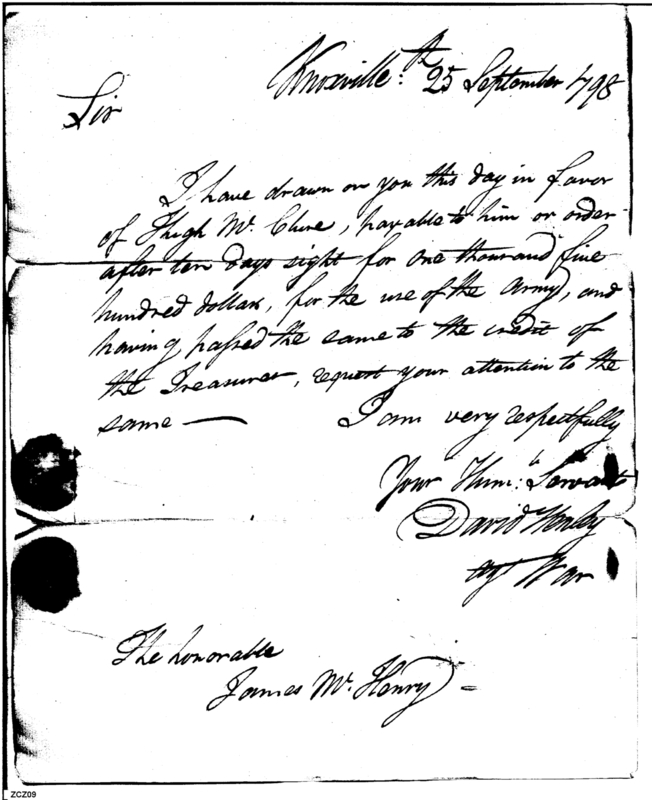 Knoxville: 25 September 1798
Sir
I have drawn on you this day in favor
of Hugh Mc. Clure, payable to him or order
after ten days sight for one thousand five
hundred dollars, for the use of the Army, and
having passed the same to the credit of
the Treasurer, request your attention to the
same —
I am very respectfully
Your Hum: Servant
David Henley
agt War
The honorable
James Mc. Henry
ZCZ09